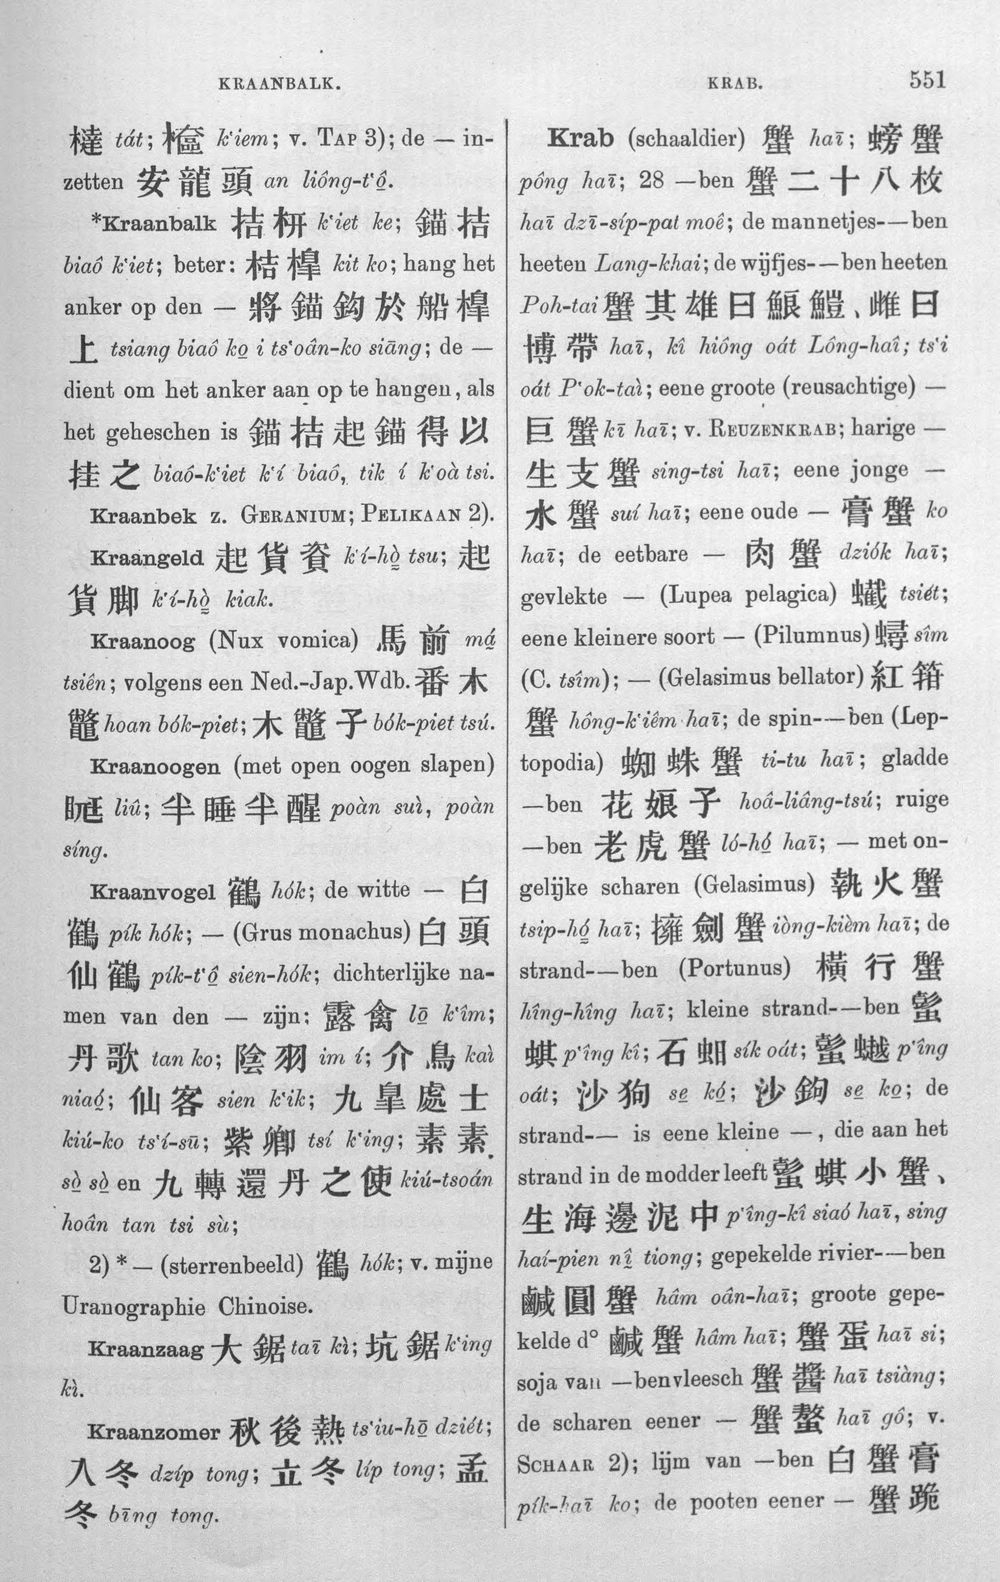 KRAANBALK.
KRAB.
551
橽 tát; 㯺 k‘iem; v. TAP 3); de — in-
zetten 安龍頭 an liông-t‘ô̱.
*Kraanbalk 拮枅 k‘iet ke; 錨拮
biaô k‘iet; beter: 桔槔 kit ko; hang het
anker op den — 將錨鈎於船槔
上 tsiang biaô ko̱ i ts‘oân-ko siāng; de —
dient om het anker aan op te hangen, als
het geheschen is 錨拮起錨得以
挂之 biaô-k‘iet k‘í biaô, tik í k‘oà tsi.
Kraanbek z. GERANIUM; PELIKAAN 2).
Kraangeld 起貨資 k‘í-hò̱ tsu; 起
貨脚 k‘í-hò̱ kiak.
Kraanoog (Nux vomica) 馬前 má̱
tsiên; volgens een Ned.-Jap.Wdb. 番木
鼈 hoan bók-piet; 木鼈子 bók-piet tsú.
Kraanoogen (met open oogen slapen)
liû; 半睡半醒 poàn suì, poàn
síng.
Kraanvogel 鶴 hók; de witte — 白
鶴 pík hók; — (Grus monachus) 白頭
仙鶴 pík-t‘ô̱ sien-hók; dichterlijke na-
men van den — zijn: 露禽 lō̱ k‘îm;
丹歌 tan ko; 陰羽 im í; 介鳥 kaì
niaó̱; 仙客 sien k‘ik; 九皐處士
kiú-ko ts‘í-sū; 紫卿 tsí k‘ing; 素素
sò̱ sò̱ en 九轉還丹之使 kiú-tsoán
hoân tan tsi sù;
2) * — (sterrenbeeld) 鶴 hók; v. mijne
Uranographie Chinoise.
Kraanzaag 大鋸 taī kì; 坑鋸 k‘ing
kì.
Kraanzomer 秋後熱 ts‘iu-hō̱ dziét;
入冬 dzíp tong; 立冬 líp tong; 孟
冬 bīng tong.
Krab (schaaldier) 蟹 haī; 螃蟹
pông haī; 28 —ben 蟹二十八枚
haī dzī-síp-pat moê; de mannetjes-—ben
heeten Lang-khai; de wijfjes-—ben heeten
Poh-tai 蟹其雄曰鯯鱧、雌曰
博帶 haī, kî hiông oát Lông-haî; ts‘i
oát P‘ok-taì; eene groote (reusachtige) —
巨蟹 kī haī; v. REUZENKRAB; harige —
生支蟹 sing-tsi haī; eene jonge —
水蟹 suí haī; eene oude — 膏蟹 ko
haī; de eetbare — 肉蟹 dziók haī;
gevlekte — (Lupea pelagica) 蠘 tsiét;
eene kleinere soort — (Pilumnus) 蟳 sîm
(C. tsîm); — (Gelasimus bellator) 紅箝
蟹 hông-k‘iêm haī; de spin-—ben (Lep-
topodia) 蜘蛛蟹 ti-tu haī; gladde
—ben 花娘子 hoâ-liâng-tsú; ruige
—ben 老虎蟹 ló-hó̱ haī; — met on-
gelijke scharen (Gelasimus) 執火蟹
tsip-hó̱ haī; 擁劍蟹 iòng-kièm haī; de
strand-—ben (Portunus) 橫行蟹
hîng-hîng haī; kleine strand-—ben 蟚
蜞 p‘îng kî; 石蚏 sík oát; 蟚䗋 p‘îng
oát; 沙狗 se̱ kó̱; 沙鉤 se̱ ko̱; de
strand-— is eene kleine —, die aan het
strand in de modder leeft 蟚蜞小蟹、
生海邊泥中 p‘îng-kî siaó haī, sing
haí-pien nî̱ tiong; gepekelde rivier-—ben
鹹圓蟹 hâm oân-haī; groote gepe-
kelde d° 鹹蟹 hâm haī; 蟹蛋 haī si;
soja van —benvleesch 蟹醬 haī tsiàng;
de scharen eener — 蟹螯 haī gô; v.
SCHAAR 2); lijm van —ben 白蟹膏
pík-haī ko; de pooten eener — 蟹跪